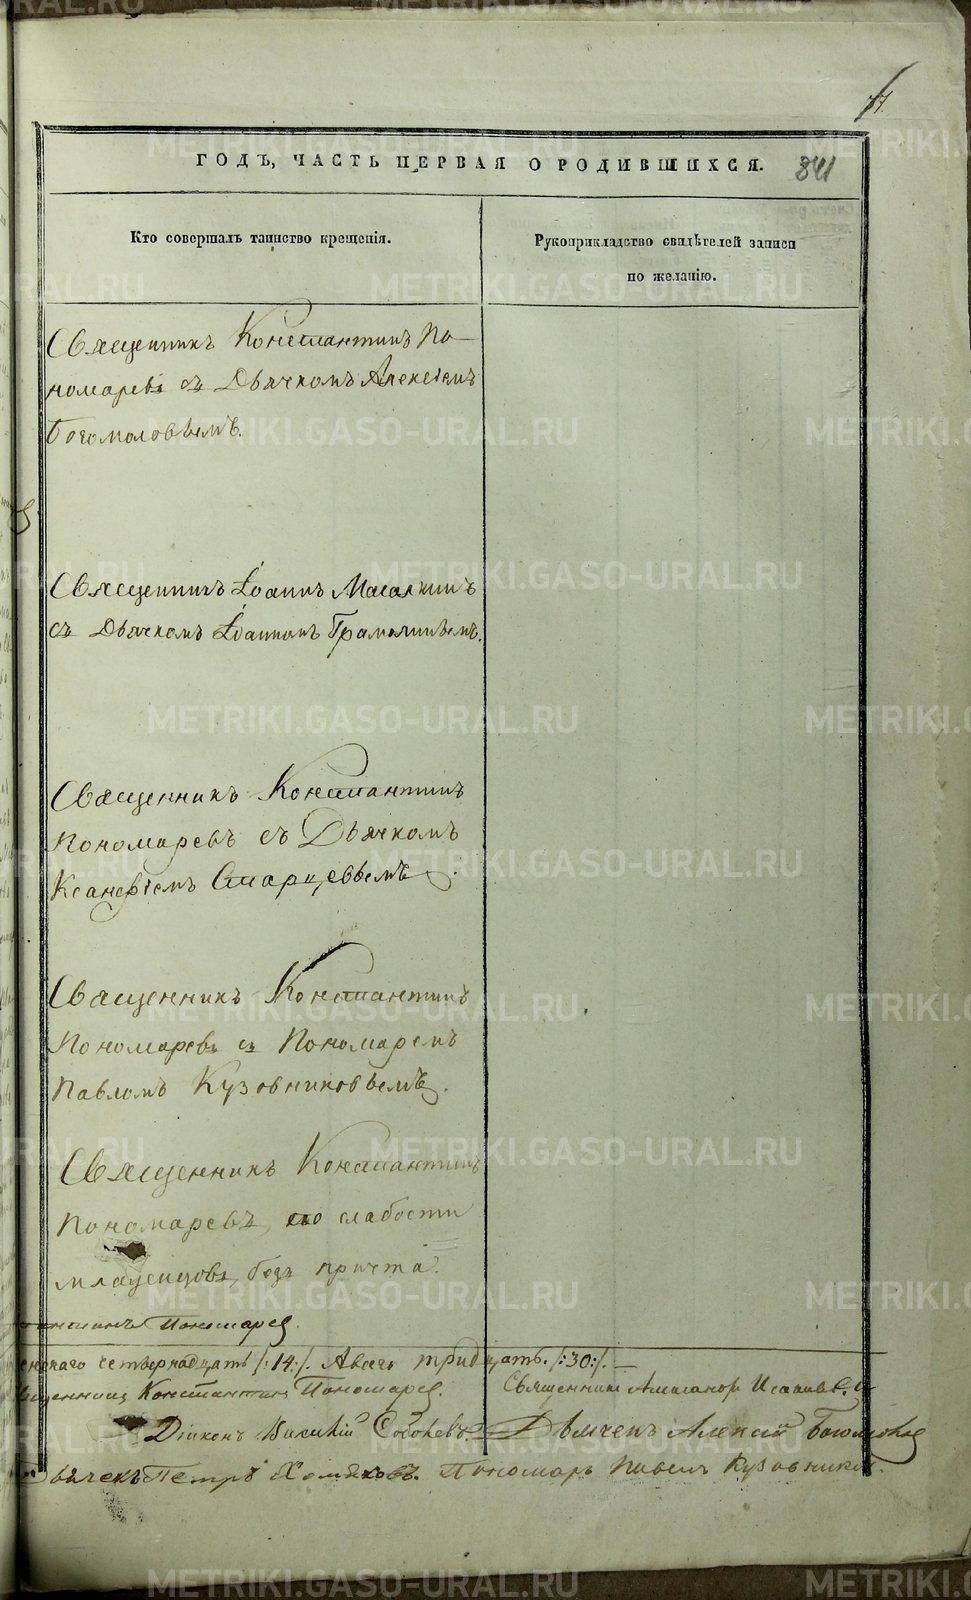 ГОДЪ, ЧАСТЬ ПЕРВАЯ О РОДИВШИХСЯ. 841
Кто совершалъ таинство крещенія.
Рукоприкладство свидѣтелей записи
по желанію.
Священникъ Константинъ По-
номаревъ съ Дьячкомъ Алексіемъ
Богомоловымъ.
Священникъ Іоаннъ
съ Дьячкомъ Іоанномъ
Священникъ Константинъ
Пономаревъ съ Дьячкомъ
Старцевымъ.
Священникъ Константинъ
Пономаревъ съ Пономаремъ
Павломъ Кузовниковымъ.
Священникъ Константинъ
Пономаревъ, по слабости
младенцовъ, безъ причта.
Пономаревъ.
четырнадцать /:14:/. Всего тридцать. /:30:/.
Константинъ Пономаревъ. Священникъ
Діаконъ Василій Дьячекъ Алексій Богомоловъ
Дьячекъ Петръ Хомяковъ. Пономарь Павелъ Кузовниковъ.
METRIKI.GASO-URAL.RU